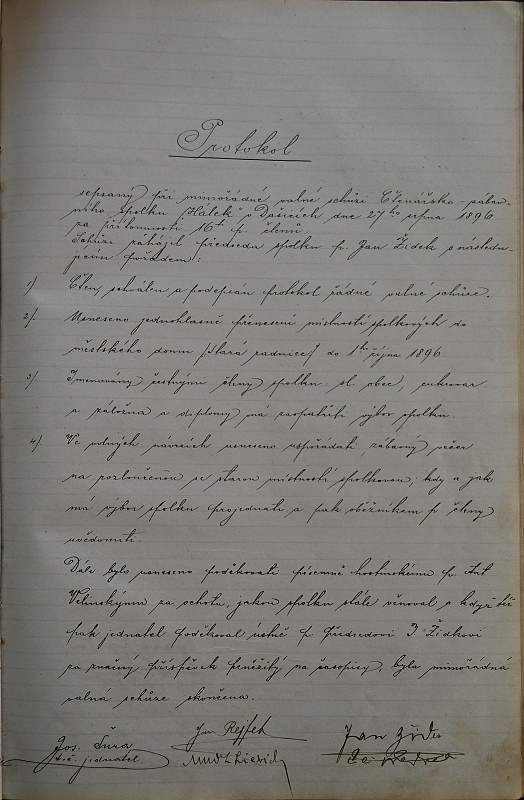 Protokol
sepsaný při mimořádné valné schůzi Čtenářsko-zábav-
ního spolku "Hálek" v Dašicích dne 27ho srpna 1896
za přítomnosti 16ti p. členů.
Schůzi zahájil předseda spolku p. Jan Žídek s následu-
jícím pořadem:
1) Čten, schválen a podepsán protokol řádné valné schůze.
2) Usneseno jednohlasně přenesení místností spolkových do
městského domu /Stará radnice/ do 1ho října 1896
3) Jmenovány čestnými členy spolku: sl. obec, cukrovar
a záložna a diplomy má zaopatřiti výbor spolku.
4) Ve volných návrzích usneseno uspořádati zábavný večer
na rozloučenou se starou místností spolkovou; kdy a jak
má výbor spolku projednati a pak oběžníkem p. členy
uvědomiti.
Dále bylo usneseno poděkovati písemně hostinskému p. Ant.
za ochotu, jakou spolku stále věnoval a když též
pak jednatel poděkoval ústně p. předsedovi J. Žídkovi
za značný příspěvek peněžitý na časopisy, byla mimořádná
valná schůze skončena.
Jos. Šura
t.č. jednatel.
Jan Rejfek
Jan Žídek